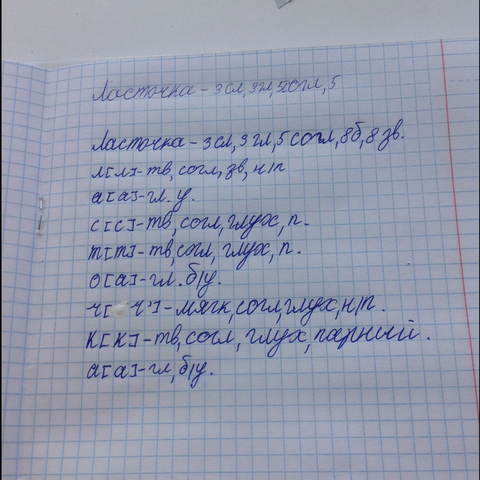 Ласточка - 3 сл, 3 гл, 5согл, 5
Ласточка - 3 сл, 3 гл, 5 согл, 8 б, 8 зв.
л[л]-тв, согл, зв, н/п
а[а]-гл. у.
с[с]-тв, согл, глух, п.
т[т]-тв, согл, глух, п.
о[а]-гл. б/у.
ч[ч']-мягк, согл, глух, н/п.
к[к]-тв, согл, глух, парный.
а[а]-гл, б/у.